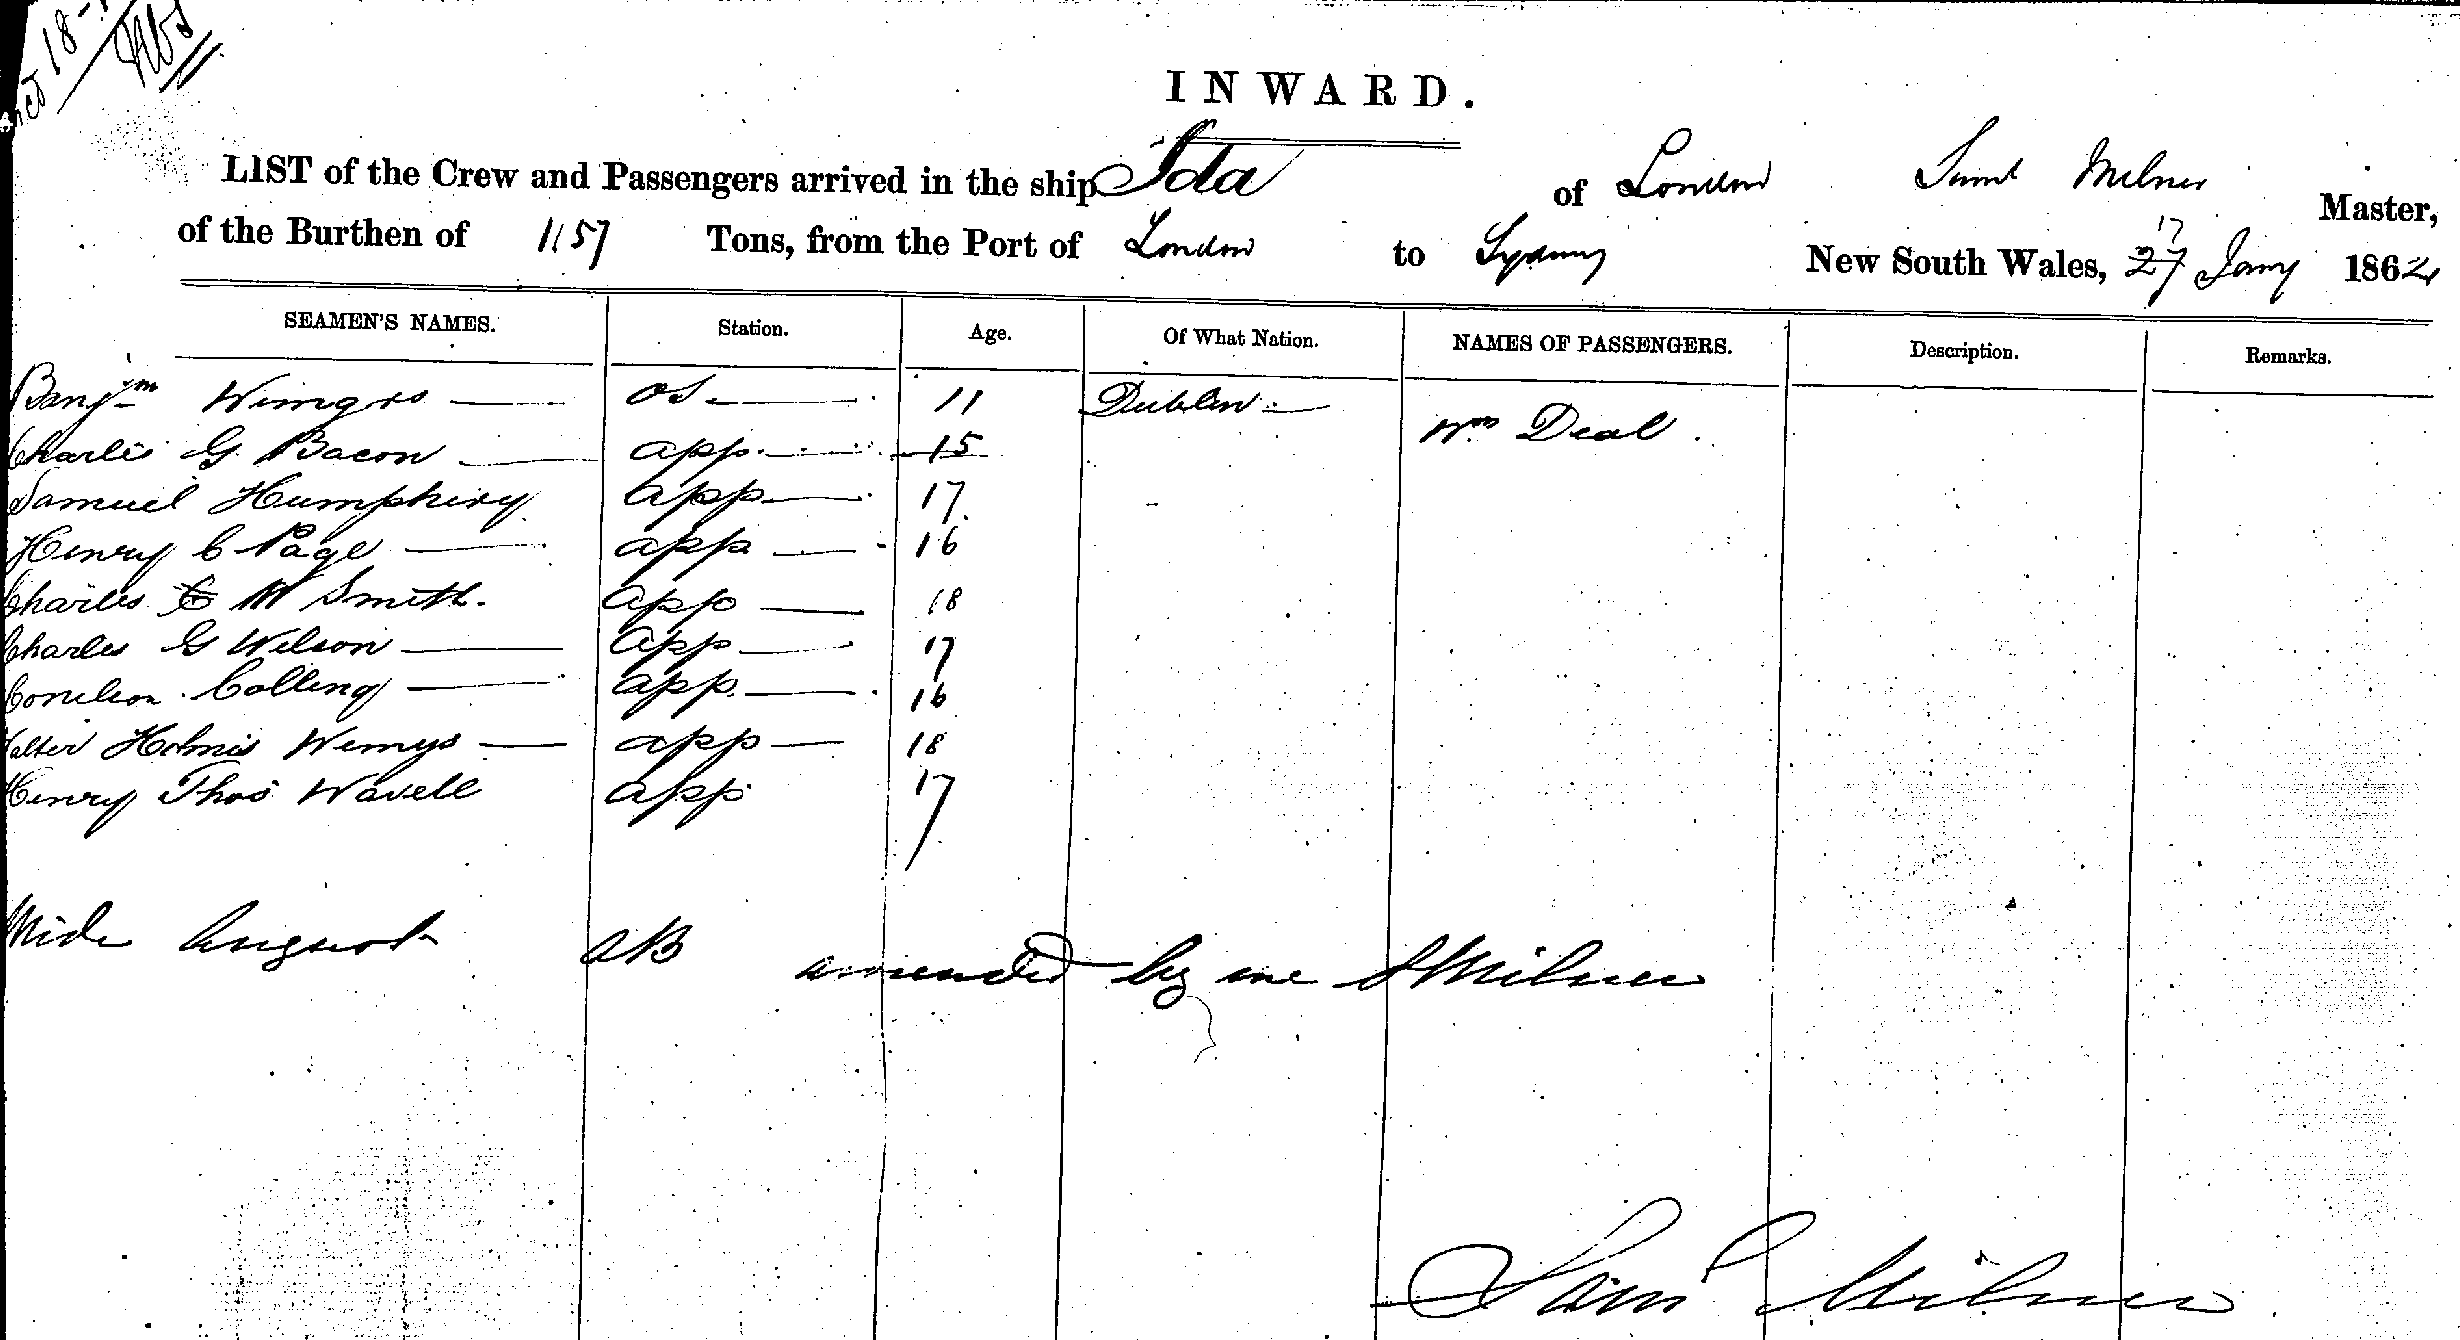 18
INWARD.
LIST of the Crew and Passengers arrived in the ship Ida of London Saml Milner Master,
of the Burthen of 1157 Tons, from the Port of London to Sydney New South Wales, 27 17 Jany 1862
SEAMEN'S NAMES. Station. Age. Of What Nation. NAMES OF PASSENGERS. Description. Remarks.
Banjm OS 11 Dublin Wm Deal
Charles G. Bacon app 15
Samuel Humphrey app 17
Henry C Page app 16
Charles W Smith. app 18
Charles G Wilson app 17
Colling app 16
Walter Holmes Wemys app 18
Henry Thos Wavell app 17
August AB amended by me S Milner
Saml Milner